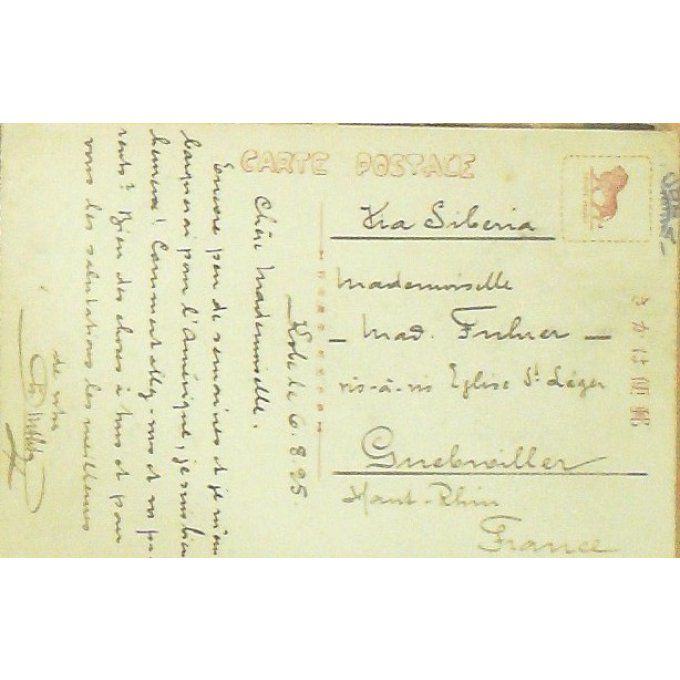 CARTE POSTALE
Via Siberia
Mademoiselle
Mad. Fuhrer
vis-à-vis Eglise St Léger
Guebwiller
Haut-Rhin
France
Kobe le 6.8.25
Chère Mademoiselle.
Encore peu de semaines et je m'em
barquerai pour l'Amérique, je suis bien
heureux! Comment allez-vous et vos pa-
rents? Bien des choses à tous et pour
vous les salutations les meilleures
de votre
きか は 便 郵